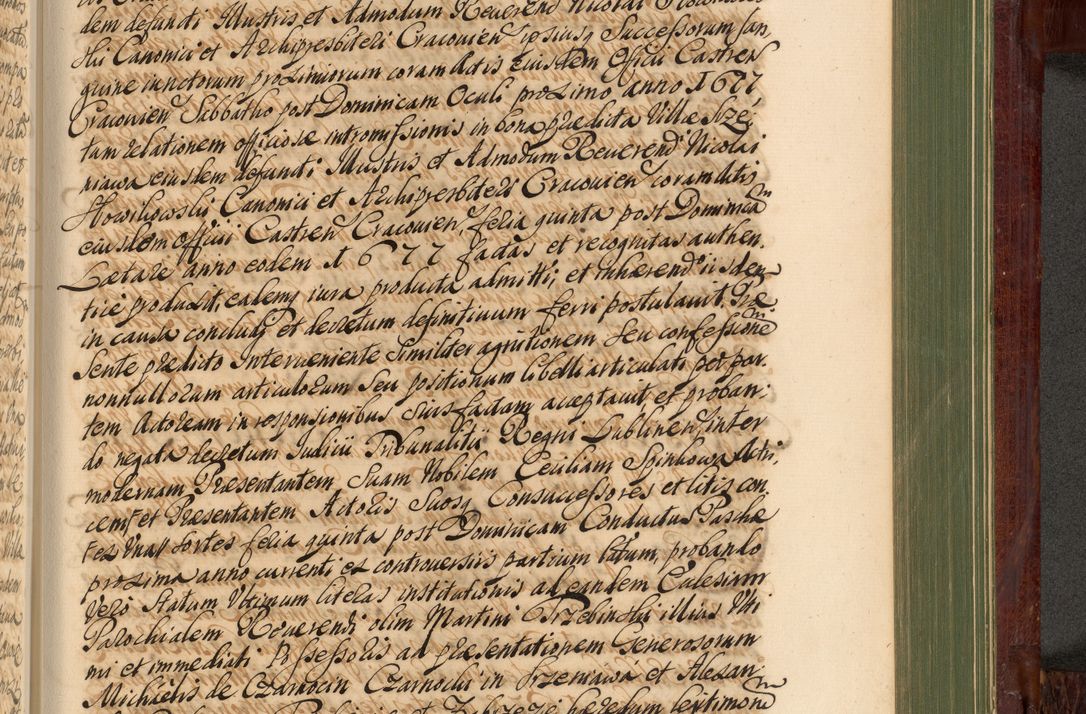 dem defuncti Illustris et Admodum Reuerend Nicolai
skii Canonici et Archipresbiteri Cracouien ipsiusq Successorum san,
guine iunctorum proximiorum coram Actis eiusdem Officii Castren
Cracouien Sabbatho post Dominicam Oculi proximo anno 1677
tam relationem officiosæ intromissionis in bona prædicta Villæ Srze,
niawa eiusdem defuncti Illustris et Admodum Reuerend Nicolai
Canonici et Archipresbiteri Cracouien coram Actis
eiusdem Officii Castren Cracouien, feria quinta post Dominicam
Lætare anno eodem 1677 factas et recognitas authen.
tice produxit, ealemq iura producta admitti, et inhærend iisdem
in causa concludi et decretum definitiuum ferri postulauit. Præ
sente prædicto Interueniente Similiter agnitionem seu confessionem
nonnullorum articulorum seu positionum libelli articulati per par.
tem Actoream in responsionibus suis factam acceptauit et proban:
do negata decretum Iudicii Tribunalitii Regni Lublinen, inter
modernam Præsentantem Suam Nobilem Ceciliam Spinkowa Actri,
cem, et Præsentantem Actoris Suosq Consuccessores et litis con
 fortes feria quinta post Dominicam Conductus Paschæ
proxima anno currenti ex controuersiis partium latum, probando
vero Statum Vltimum literas institutionis ad eandem Ecclesiam
Parochialem Reuerendi olim Martini Trzebinski illius Vlti
mi et immediati Possessoris ad præsentationem Generosorum
Michaelis de Czarnocin Czarnocki in Srzeniawa et Alexan
 hæredum legitimom